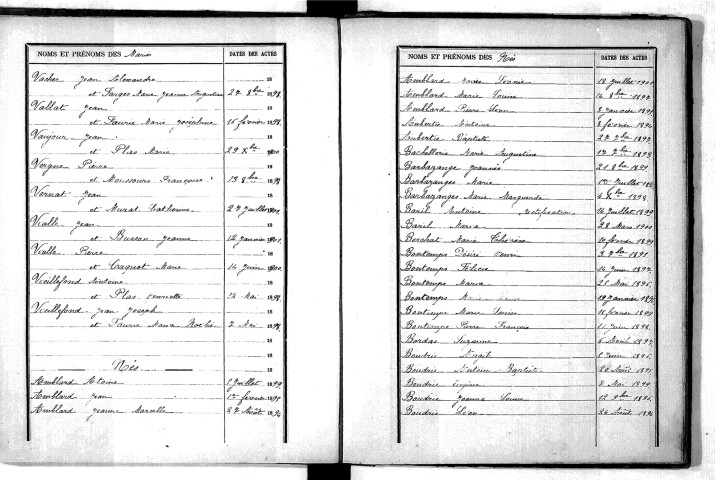 NOMS ET PRÉNOMS DES Mariés DATES DES ACTES
18
Vacher Jean Alexandre
et Farges Marie Jeanne 27 8bre 1898
Vallat Jean 18
et Faurie Marie Joséphine 16 février 1898
Vaujour Jean 18
et Plas Marie 29 Xbre 1900
Vergne Pierre 18
et Moussours Françoise 13 8bre 1898
Vernat Jean 18
et Murat Catherine 27 Juillet 1901
Vialle Jean 18
et Bussan Jeanne 12 Janvier 1901
Vialle Pierre 18
et Caquot Marie 14 Juin 1900
Vieillefond Antoine 18
et Plas Henriette 22 Mai 1898
Vieillefond Jean Joseph 18
et Faurie Maria 2 Mai 1898
18
18
Nés 18
Amblard Antoine 1 Juillet 1899
Amblard Jean 1er février 1891
Amblard Jeanne Marcelle 27 Août 1896
NOMS ET PRÉNOMS DES Nés DATES DES ACTES
Amblard Léonie 18 Juillet 1900
Amblard Marie Louise 14 8bre 1892
Amblard Pierre Léon 2 Janvier 1891
Ambertie Antoine 2 février 1894
Ambertie Baptiste 27 7bre 1892
Bachellerie Marie Augustine 17 7bre 1893
Barbazange Jeanne 21 8bre 1899
Barbazanges Marie Juillet
Barbazanges Marie Marguerite 4 Xbre 1898
Baril Antoine rectification 16 Juillet 1899
Baril Maria 28 Mars 1900
Berchat Marie Thérèse 10 février 1899
Bontemps Désiré Henri 2 7bre 1891
Bontemps Félicie 14 Juin 1897
Bontemps Maria 21 Mai 1895
Bontemps 19 Janvier
Bontemps Marie Louise 18 février 1899
Bontemps Pierre François 11 Juin 1898
Bordas Suzanne 6 Avril 1897
Boudrie 1 Juin 1895
Boudrie Antoine Baptiste 20 Août 1891
Boudrie Eugène 2 Mai 1899
Boudrie Jeanne Louise 12 9bre 1895
Boudrie Léon 24 Août 1894